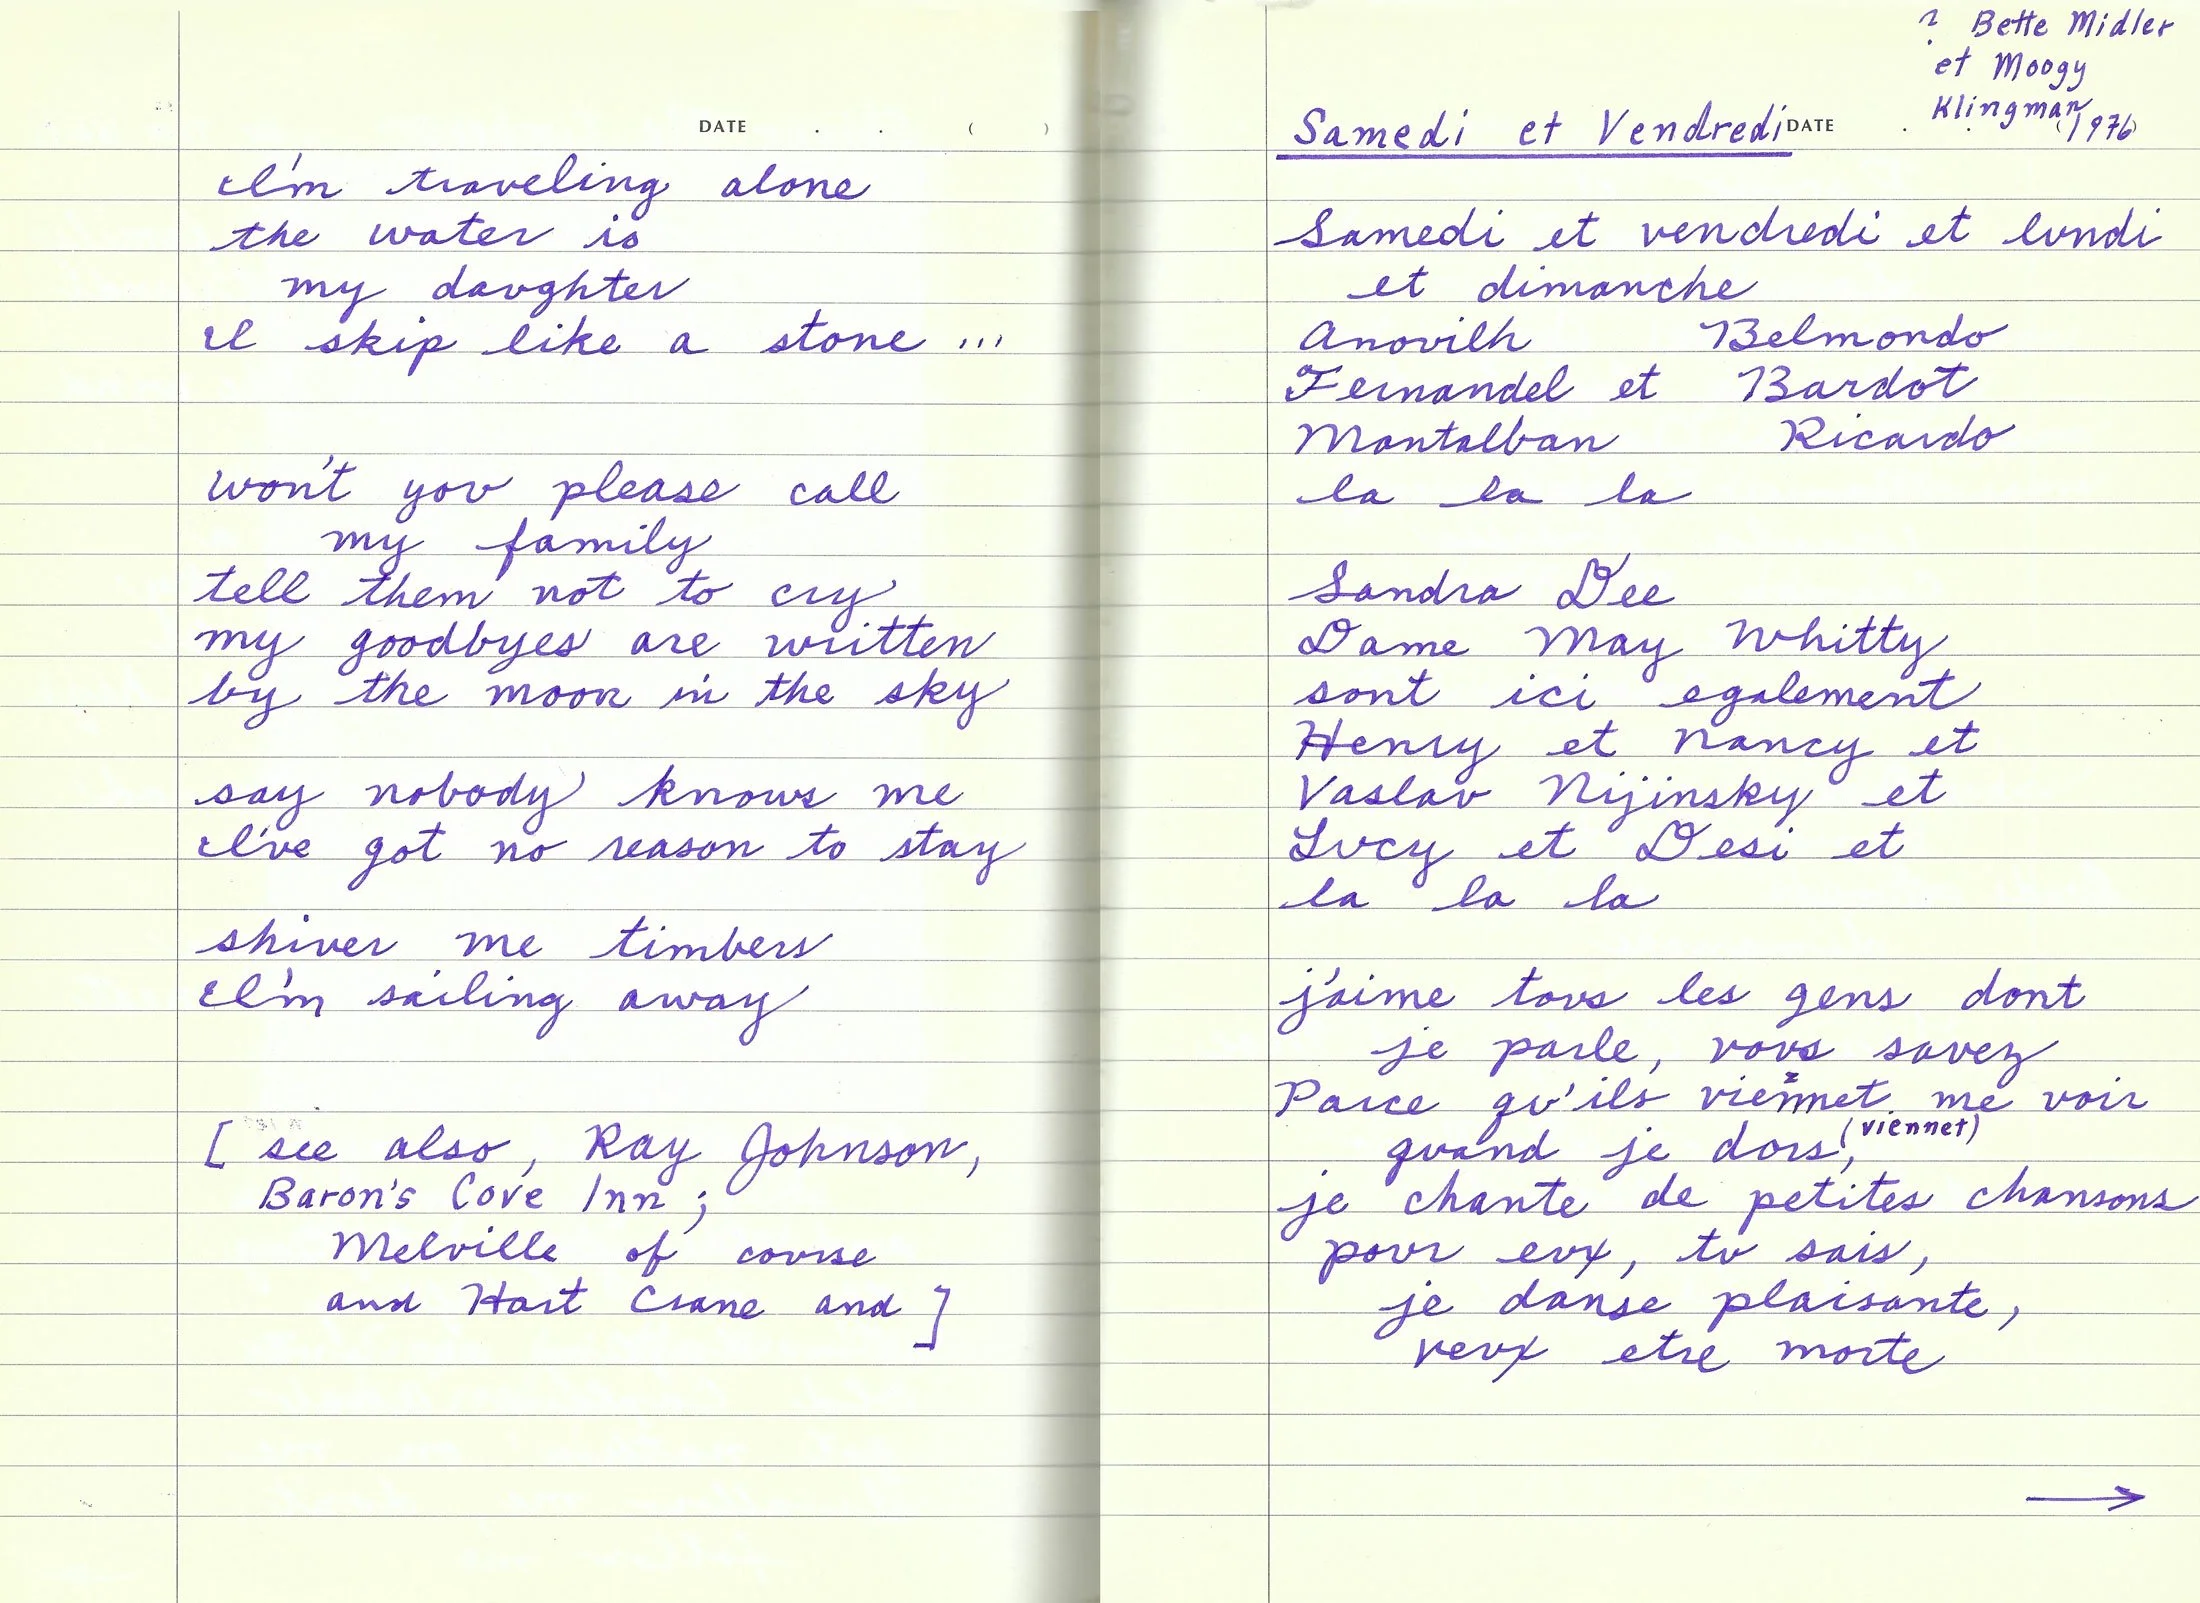 DATE . . ( )
I'm traveling alone
the water is
my daughter
I skip like a stone ...
won't you please call
my family
tell them not to cry
my goodbyes are written
by the moon in the sky
say nobody knows me
I've got no reason to stay
shiver me timbers
I'm sailing away
[ see also, Ray Johnson,
Baron's Cove Inn;
Melville of course
and Hart Crane and ]
? Bette Midler
et Moogy
Klingman
Samedi et Vendredi DATE . . (1976)
Samedi et vendredi et lundi
et dimanche
Anouilh Belmondo
Fernandel et Bardot
Montalban Ricardo
la la la
Sandra Dee
Dame May Whitty
sont ici egalement
Henry et Nancy et
Vaslav Nijinsky et
Lucy et Desi et
la la la
j'aime tous les gens dont
je parle, vous savez
Parce qu'ils viennet me voir
quand je dors, (viennet)
je chante de petites chansons
pour eux, tu sais,
je danse plaisante,
veux etre morte
→